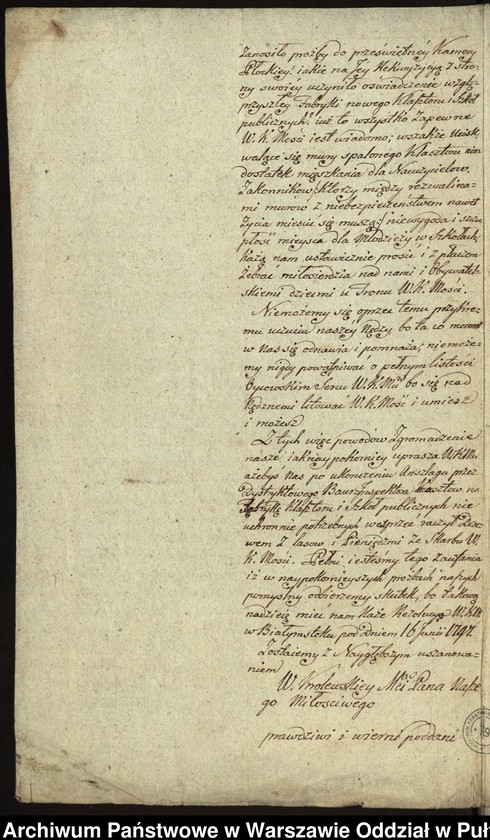 zanosiło proźby do prześwietney Kamery
Płockiey. jakie na Jey Rekwizycyą z stro-
ny swoiey uczyniło oświadczenie wzglę-
przyszłey Fabryki nowego Klasztoru i Szkoł
publicznych? już to wszystko Zapewne
W. K. Mości iest wiadomo; wszakże
walące się mury spalonego Klasztoru nie-
dostatek mieszkania dla Nauczycielow,
Zakonnikow, ktorzy między rozwalina-
mi murow z niebezpieczeństwem nawet
Życia mieścić się muszą; niewygoda i szczu-
płość mieysca dla Młodzieży w Szkołach,
każą nam ustawicznie prosić i z płaczem
żebrać miłosierdzia nad nami i Obywatel-
skiemi dziecmi u Tronu W. K. Mości.
Niemożemy się oprzeć temu przykre-
mu uczuciu naszey Nędzy bo ta co moment
w nas się odnawia i pomnaża; niemoże-
my nigdy powątpiwać o pełnym litości
Oycowskim Sercu W. K. Mci bo się nad
Nędznemi litować W. K. Mość i umiesz
i możesz
Z tych więc powodow Zgromadzenie
nasze iaknaypokorniey uprasza W. K. M.
ażebyś Nas po ukończeniu Anszlagu przez
Dystryktowego Bauinspektora Kosztow na
Fabrykę Klasztoru i Szkoł publicznych nie
uchronnie potrzebnych wesprzeć raczył drze-
wem z lasow i Pieniędzmi ze Skarbu W.
K. Mości. Pełni iesteśmy tego Zaufania
iż w naypokornieyszych proźbach naszych
pomyślny odbierzemy skutek, bo takową
nadzieię mieć nam Każe Rezolucya W. K. M.
w Białymstoku pod dniem 16 Junii 1797.
Zostaiemy z Naygłębszym uszanowa-
niem
W. Krolewskiey Mci Pana Nasze-
go Miłościwego
prawdziwi i wierni poddani
Archiwum Państwowe w Warszawie Oddział w Puł